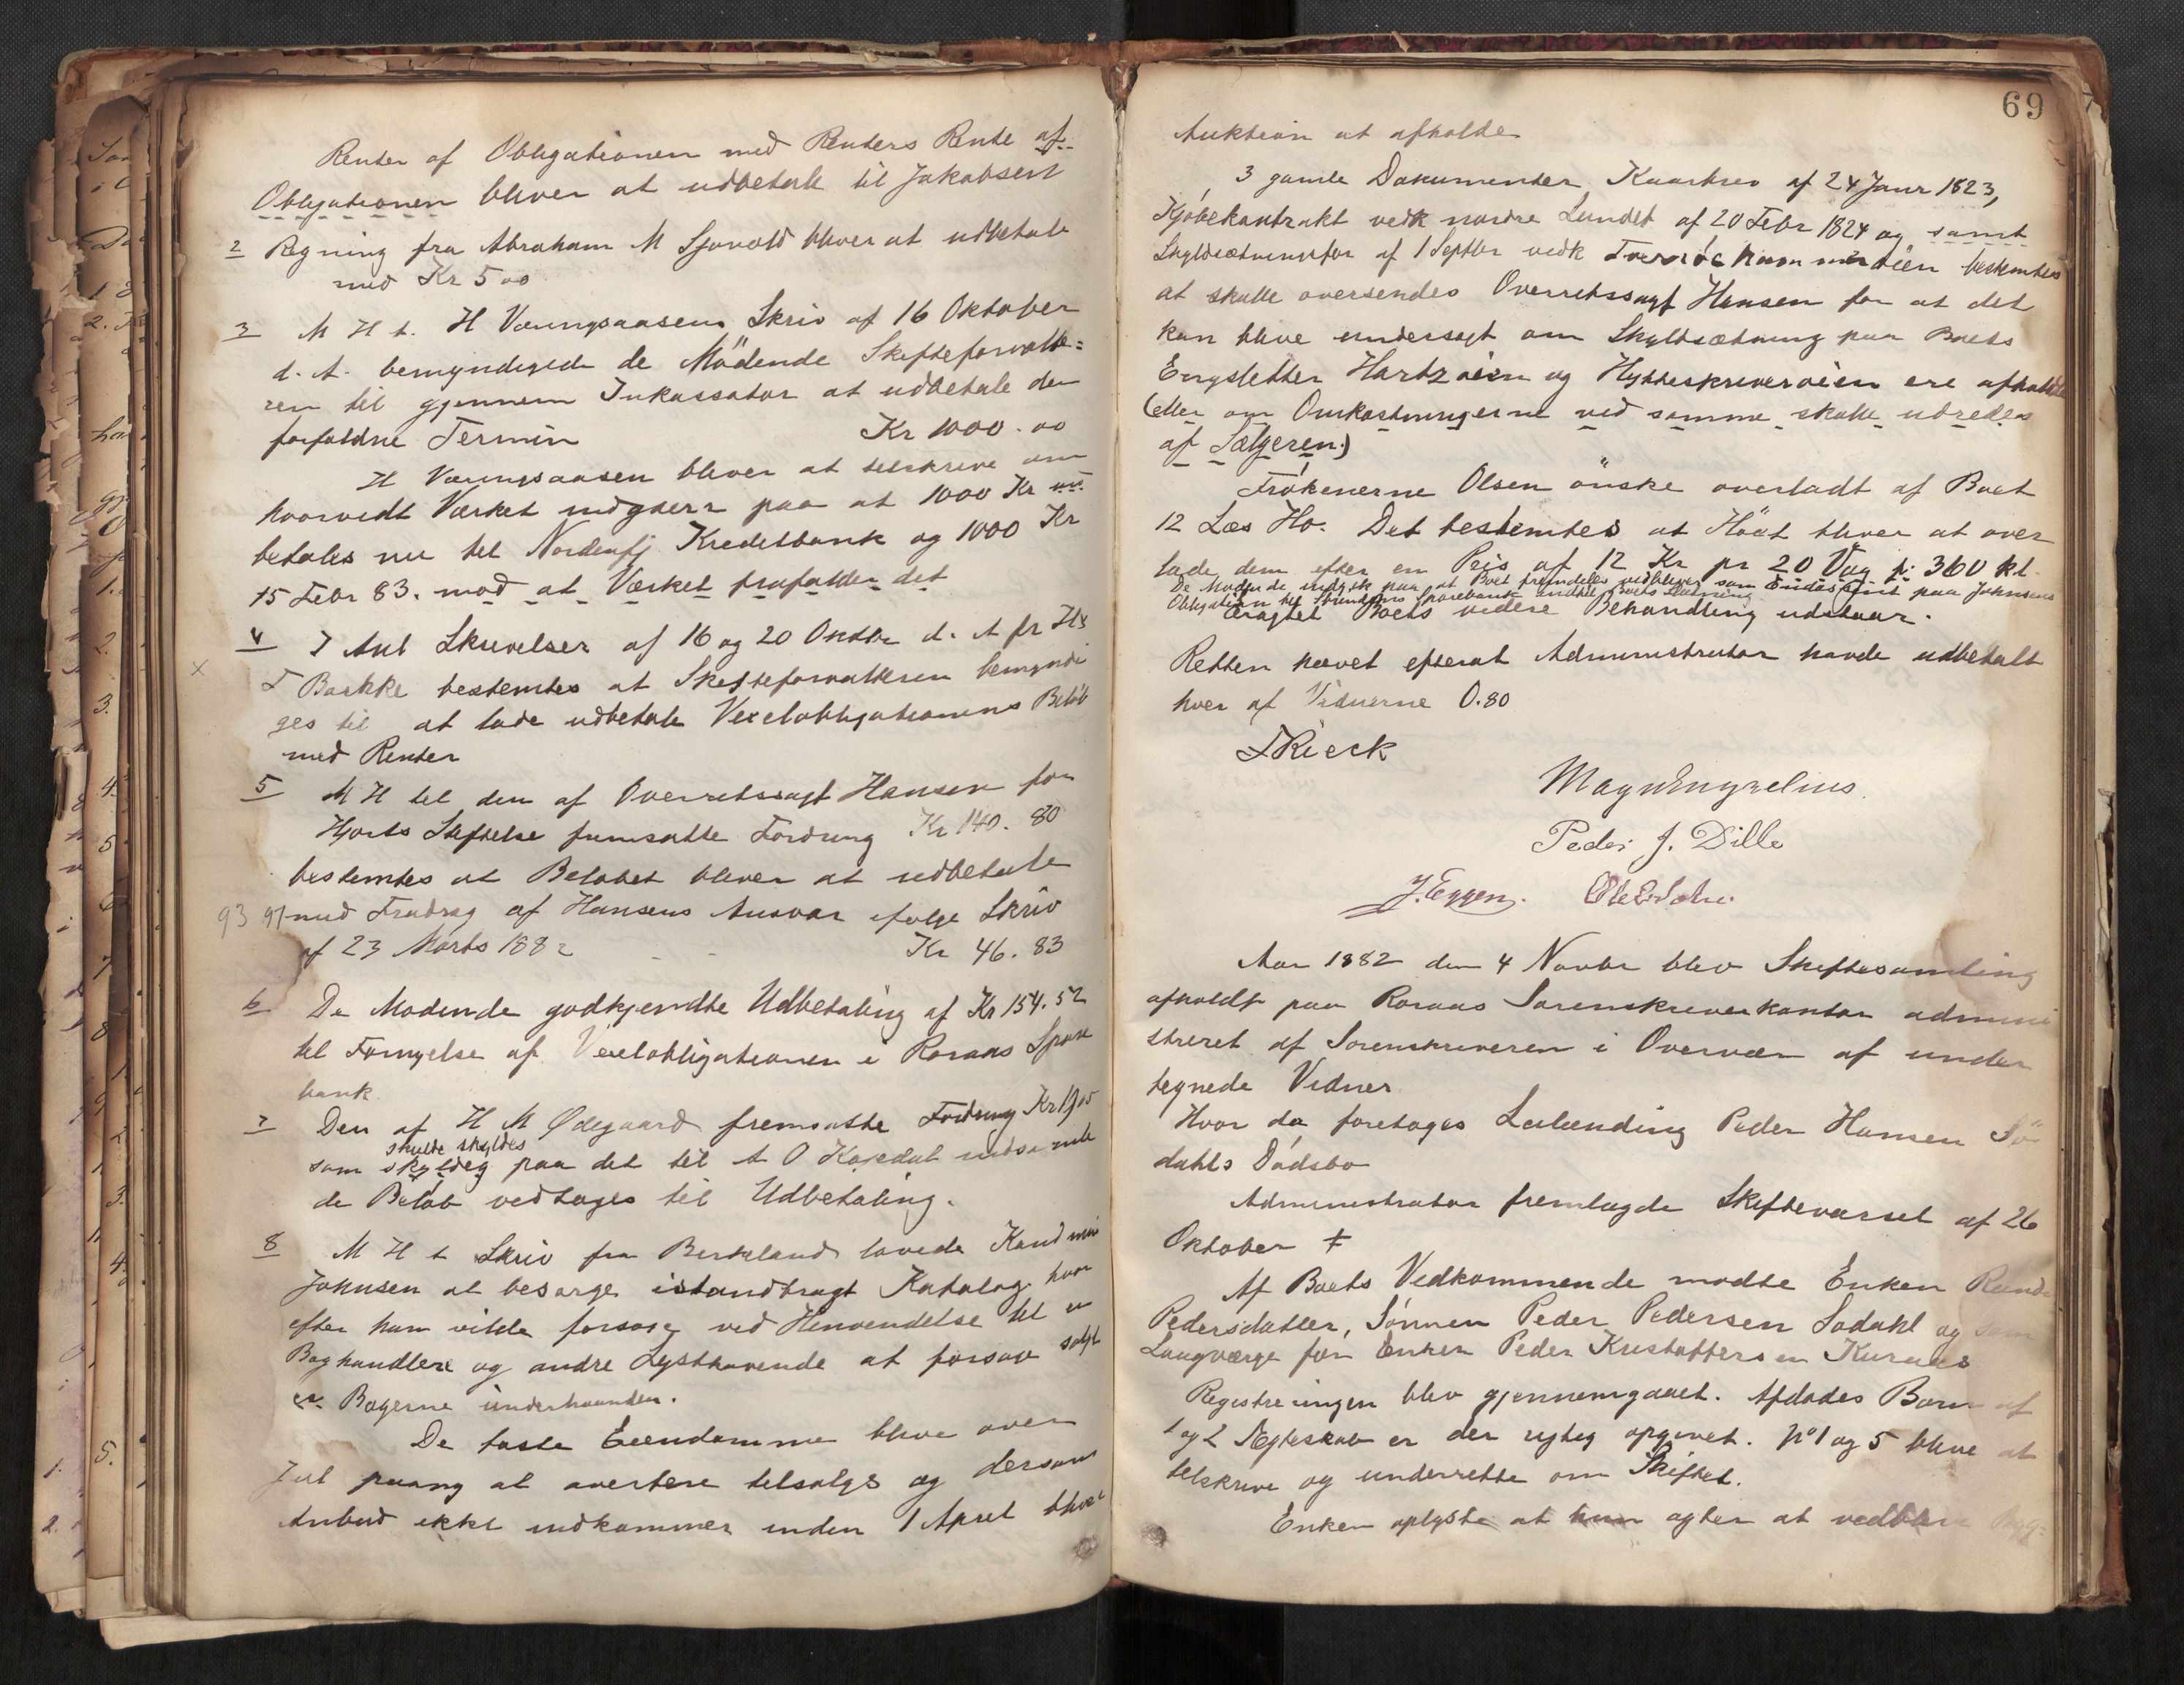 Renter af Obligationen med Renters Rente af
Obligationen bliver at udbetale til Jakobsen
2 Regning fra Abraham M Sjøvold bliver at udbetale
med Kr 5 00
3 M H t. H Vaungsaasens Skriv af 16 Oktober
d. A. bemyndigede de Mödende Skifteforvalte=
ren til gjennem Inkassator at udbetale den
forfaldne Termin Kr 1000.00
H Vaungsaasen bliver at tilskrive om
hvorvidt Værket indgaar paa at 1000 Kr
betales nu til Nordenfj Kreditbank og 1000 Kr
15 Febr 83. mod at Værket frafalder det
4 I Anl Skrivelser af 16 og 20 Oktbr d. A fr
Bakke bestemtes at Skifteforvalteren bemyndi
ges til at lade udbetale Vexelobligationens Beløb
med Renter
5 M H til den af Overretssagf Hansen for
Hjorts Stiftelse fremsatte Fordring Kr 140. 80
bestemtes at Beløbet bliver at udbetale
93 97 med Fradrag af Hansens Ansvar ifølge Skriv
af 23 Marts 1882 - - Kr 46. 83
6 De Mødende godkjendte Udbetaling af Kr 154.52
til Fornyelse af Vexelobligationen i Røraas Spare
bank
7 Den af H M Ødegaard fremsatte Fordring Kr
skulde skyldes
som skyldig paa det til A O Kojedal indsende
de Beløb vedtages til Udbetaling.
8 M H t Skriv fra Berkeland lovede Kand min
Johnsen at besørge istandbragt Katalog hvor
efter han vilde forsøge ved Henvendelse til
Boghandlere og andre Lysthavende at forsøge solgt
Bøgerne underhaanden.
De faste Eiendomme blive over
Jul paany at avertere tilsalgs og dersom
Anbud ikke indkommer inden 1 April bliver
69
Auktion at afholde
3 gamle Dokumenter, Kaarbrev af 24 Janr 1823,
Kjöbekontrakt vedk nordre Lundet af 20 Febr 1824 og samt
Skyldsætningsfor af 1 Septbr vedk bestemtes
at skulle oversendes Overretssagf Hansen for at det
kan blive undersøgt om Skyldsætning paa Boets
Engsletter Hartzvoien og Hytteskrivervoien ere afholdte
(eller om Omkostningerne ved samme skulle udredes
af Sælgeren.)
Frøkenerne Olsen önske overladt af Boet
12 Læs Hø. Det bestemtes at Höet bliver at over
lade dem efter en Pris af 12 Kr pr 20 Vog p: 360 kl.
De Mødende indgik paa at Boet fremdeles vedbliver som Endossent paa Johnsens
Obligation til Trondhjems Sparebank indtil Boets Slutning
uagtet Boets videre Behandling udstaar.
Retten hævet efterat Administrator havde udbetalt
hver af Vidnerne 0.80
Rieck
Magn Engzelius
Peder J. Dille
J. Eggen.
Aar 1882 den 4 Novbr blev Skiftesamling
afholdt paa Røraas Sorenskriverkontor admini
streret af Sorenskriveren i Overvær af under
tegnede Vidner
Hvor da foretoges Leilending Peder Hansen Sö
dahls Dødsbo
Administrator fremlagde Skiftevarsel af 26
Oktober ŧ
Af Boets Vedkommende mødte Enken Randi
Pedersdatter, Sønnen Peder Pedersen Sødahl og som
Laugværge for Enken Peder Kristoffersen Kuraas
Registreringen blev gjennemgaaet. Afdødes Børn af
1 og 2 Ægteskab er der rigtig opgivet. No 1 og 5 blive at
tilskrive og underrette om Skiftet.
Enken oplyste at hun agter at vedblive